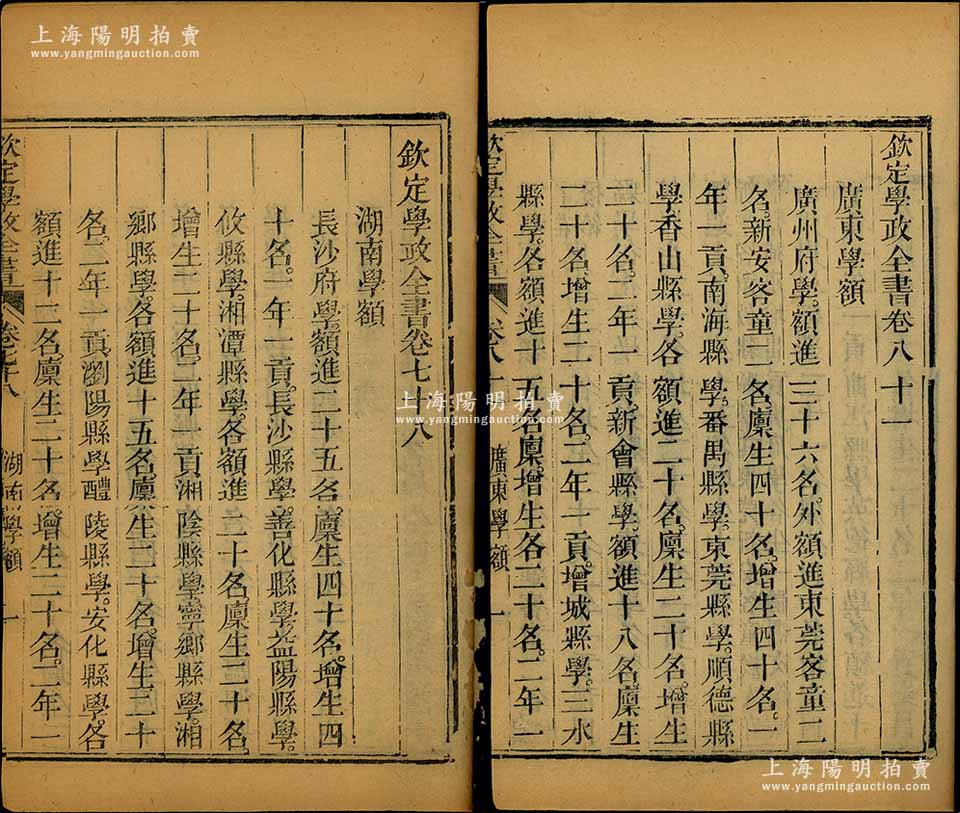 欽定學政全書卷八十一
廣東學額
廣州府學額進三十六名外額進東莞客童二
名新安客童二名廩生四十名增生四十名一
年一貢南海縣學番禺縣學東莞縣學順德縣
學香山縣學各額進二十名廩生二十名增生
二十名二年一貢新會縣學額進十八名廩生
二十名增生二十名二年一貢增城縣學三水
縣學各額進十五名廩增生各二十名二年一
欽定學政全書 卷八 廣東學額 一
欽定學政全書卷七十八
湖南學額
長沙府學額進二十五名廩生四十名增生四
十名一年一貢長沙縣學善化縣學益陽縣學
攸縣學湘潭縣學各額進二十名廩生二十名
增生二十名二年一貢湘陰縣學寧鄉縣學湘
鄉縣學各額進十五名廩生二十名增生二十
名二年一貢瀏陽縣學醴陵縣學安化縣學各
額進十二名廩生二十名增生二十名二年一
欽定學政全書 卷七十八 湖南學額 一
上海陽明拍賣
www.yangmingauction.com
上海陽明拍賣
www.yangmingauction.com
上海陽明拍賣
www.yangmingauction.com